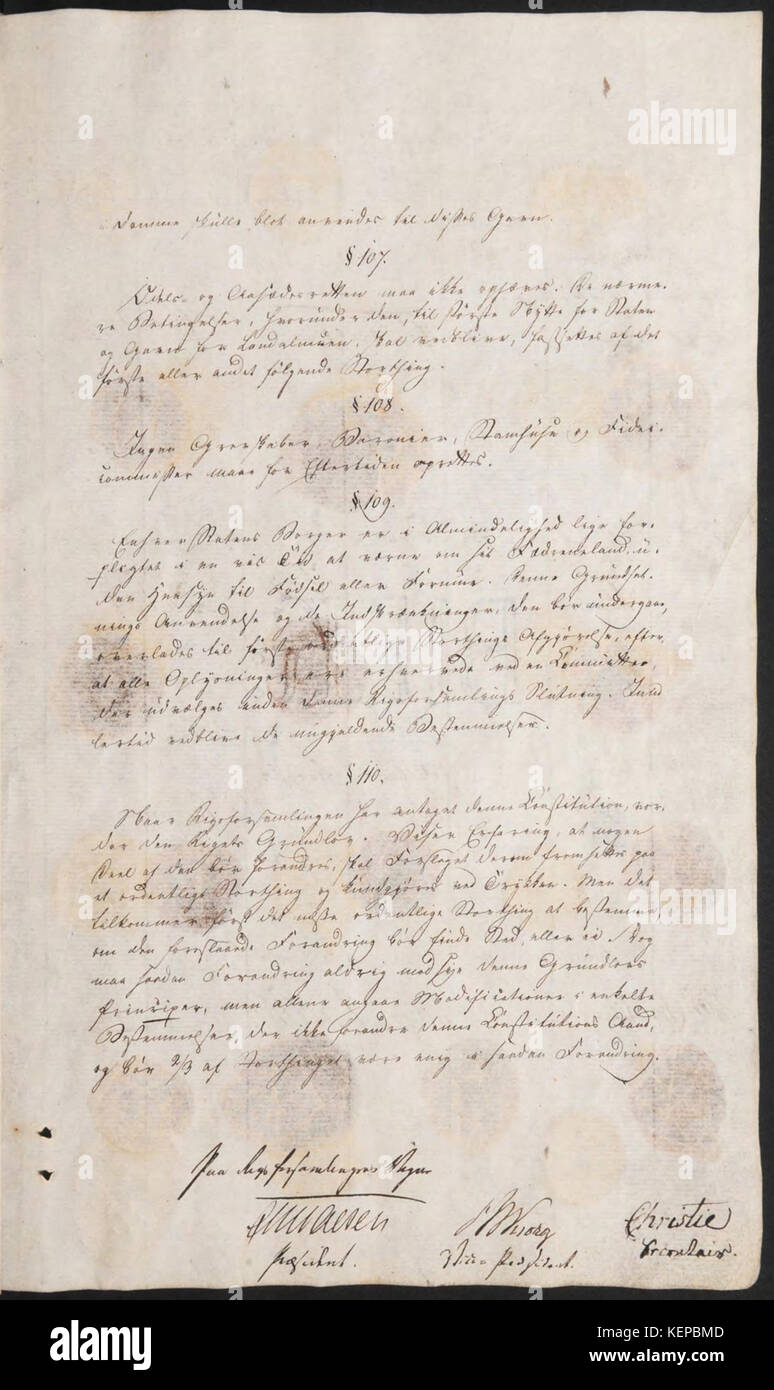 Domme skulle blot anvendes til disses Gavn.
§ 107.
Odels- og Aasædesretten maa ikke ophæves. De nærme-
re Betingelser, hvorunder den, til største Nytte for Staten
og Gavn for Landalmuen, skal vedblive, fastsættes af det
første eller andet følgende Storthing.
§ 108.
Ingen Grevskaber, Baronier, Stamhuse og Fidei-
commisser maae for Eftertiden oprettes.
§ 109.
Enhver Statens Borger er i Almindelighed lige for-
pligtet i en vis Tid at værne om sit Fædreneland, u-
den Hensyn til Fødsel eller Formue. Denne Grundsæt-
nings Anvendelse og de Indskrænkninger, den bør undergaae,
overlades til første ordentlige Storthings Afgjørelse, efter
at alle Oplysninger ere erhvervede ved en Committee,
der udvælges inden denne Rigsforsamlings Slutning. Imid-
lertid vedblive de nugjeldende Bestemmelser.
§ 110.
Naar Rigsforsamlingen har antaget denne Constitution, vor-
der den Rigets Grundlov. Viser Erfaring, at nogen
Deel af den bør forandres, skal Forslaget derom fremsættes paa
et ordentligt Storthing og kundgjøres ved Trykken. Men det
tilkommer først det næste ordentlige Storthing at bestemme,
om den foreslaaede Forandring bør finde Sted, eller ei. Dog
maa saadan Forandring aldrig modsige denne Grundlovs
Principer, men allene angaae Modificationer i enkelte
Bestemmelser, der ikke forandre denne Constitutions Aand,
og bør 2/3 af Storthinget være enig i saadan Forandring.
Paa Rigsforsamlingens Vegne
Præsident.
Vice-Præsident.
Christie
Secretair.
alamy
alamy
Image ID: KEPBMD
www.alamy.com